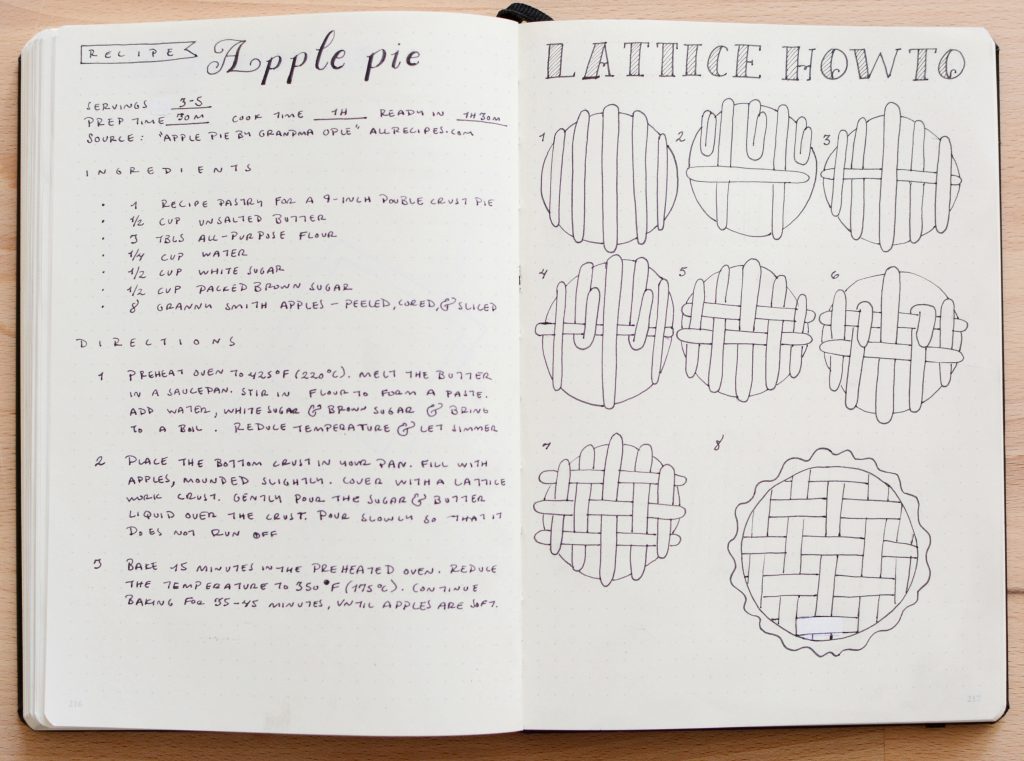 RECIPE
Apple pie
SERVINGS 3-5
PREP TIME 30M COOK TIME 1H READY IN 1H30M
SOURCE: "APPLE PIE BY GRANDMA OPLE" ALLRECIPES.COM
INGREDIENTS
· 1 RECIPE PASTRY FOR A 9-INCH DOUBLE CRUST PIE
· 1/2 CUP UNSALTED BUTTER
· 3 TBLS ALL-PURPOSE FLOUR
· 1/4 CUP WATER
· 1/2 CUP WHITE SUGAR
· 1/2 CUP PACKED BROWN SUGAR
· 8 GRANNY SMITH APPLES - PEELED, CORED, & SLICED
DIRECTIONS
1 PREHEAT OVEN TO 425°F (220°C). MELT THE BUTTER
IN A SAUCEPAN. STIR IN FLOUR TO FORM A PASTE.
ADD WATER, WHITE SUGAR & BROWN SUGAR & BRING
TO A BOIL. REDUCE TEMPERATURE & LET SIMMER
2 PLACE THE BOTTOM CRUST IN YOUR PAN. FILL WITH
APPLES, MOUNDED SLIGHTLY. COVER WITH A LATTICE
WORK CRUST. GENTLY POUR THE SUGAR & BUTTER
LIQUID OVER THE CRUST. POUR SLOWLY SO THAT IT
DOES NOT RUN OFF
3 BAKE 15 MINUTES IN THE PREHEATED OVEN. REDUCE
THE TEMPERATURE TO 350°F (175°C). CONTINUE
BAKING FOR 35-45 MINUTES, UNTIL APPLES ARE SOFT.
216
LATTICE HOW TO
1
2
3
4
5
6
7
8
217